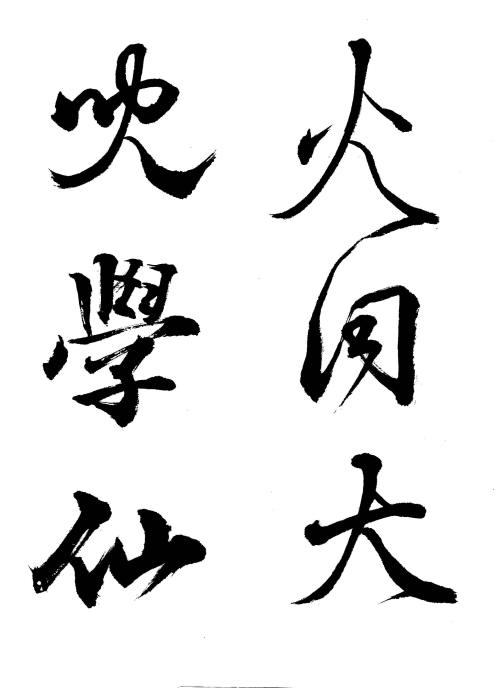 火同大
吹學仙